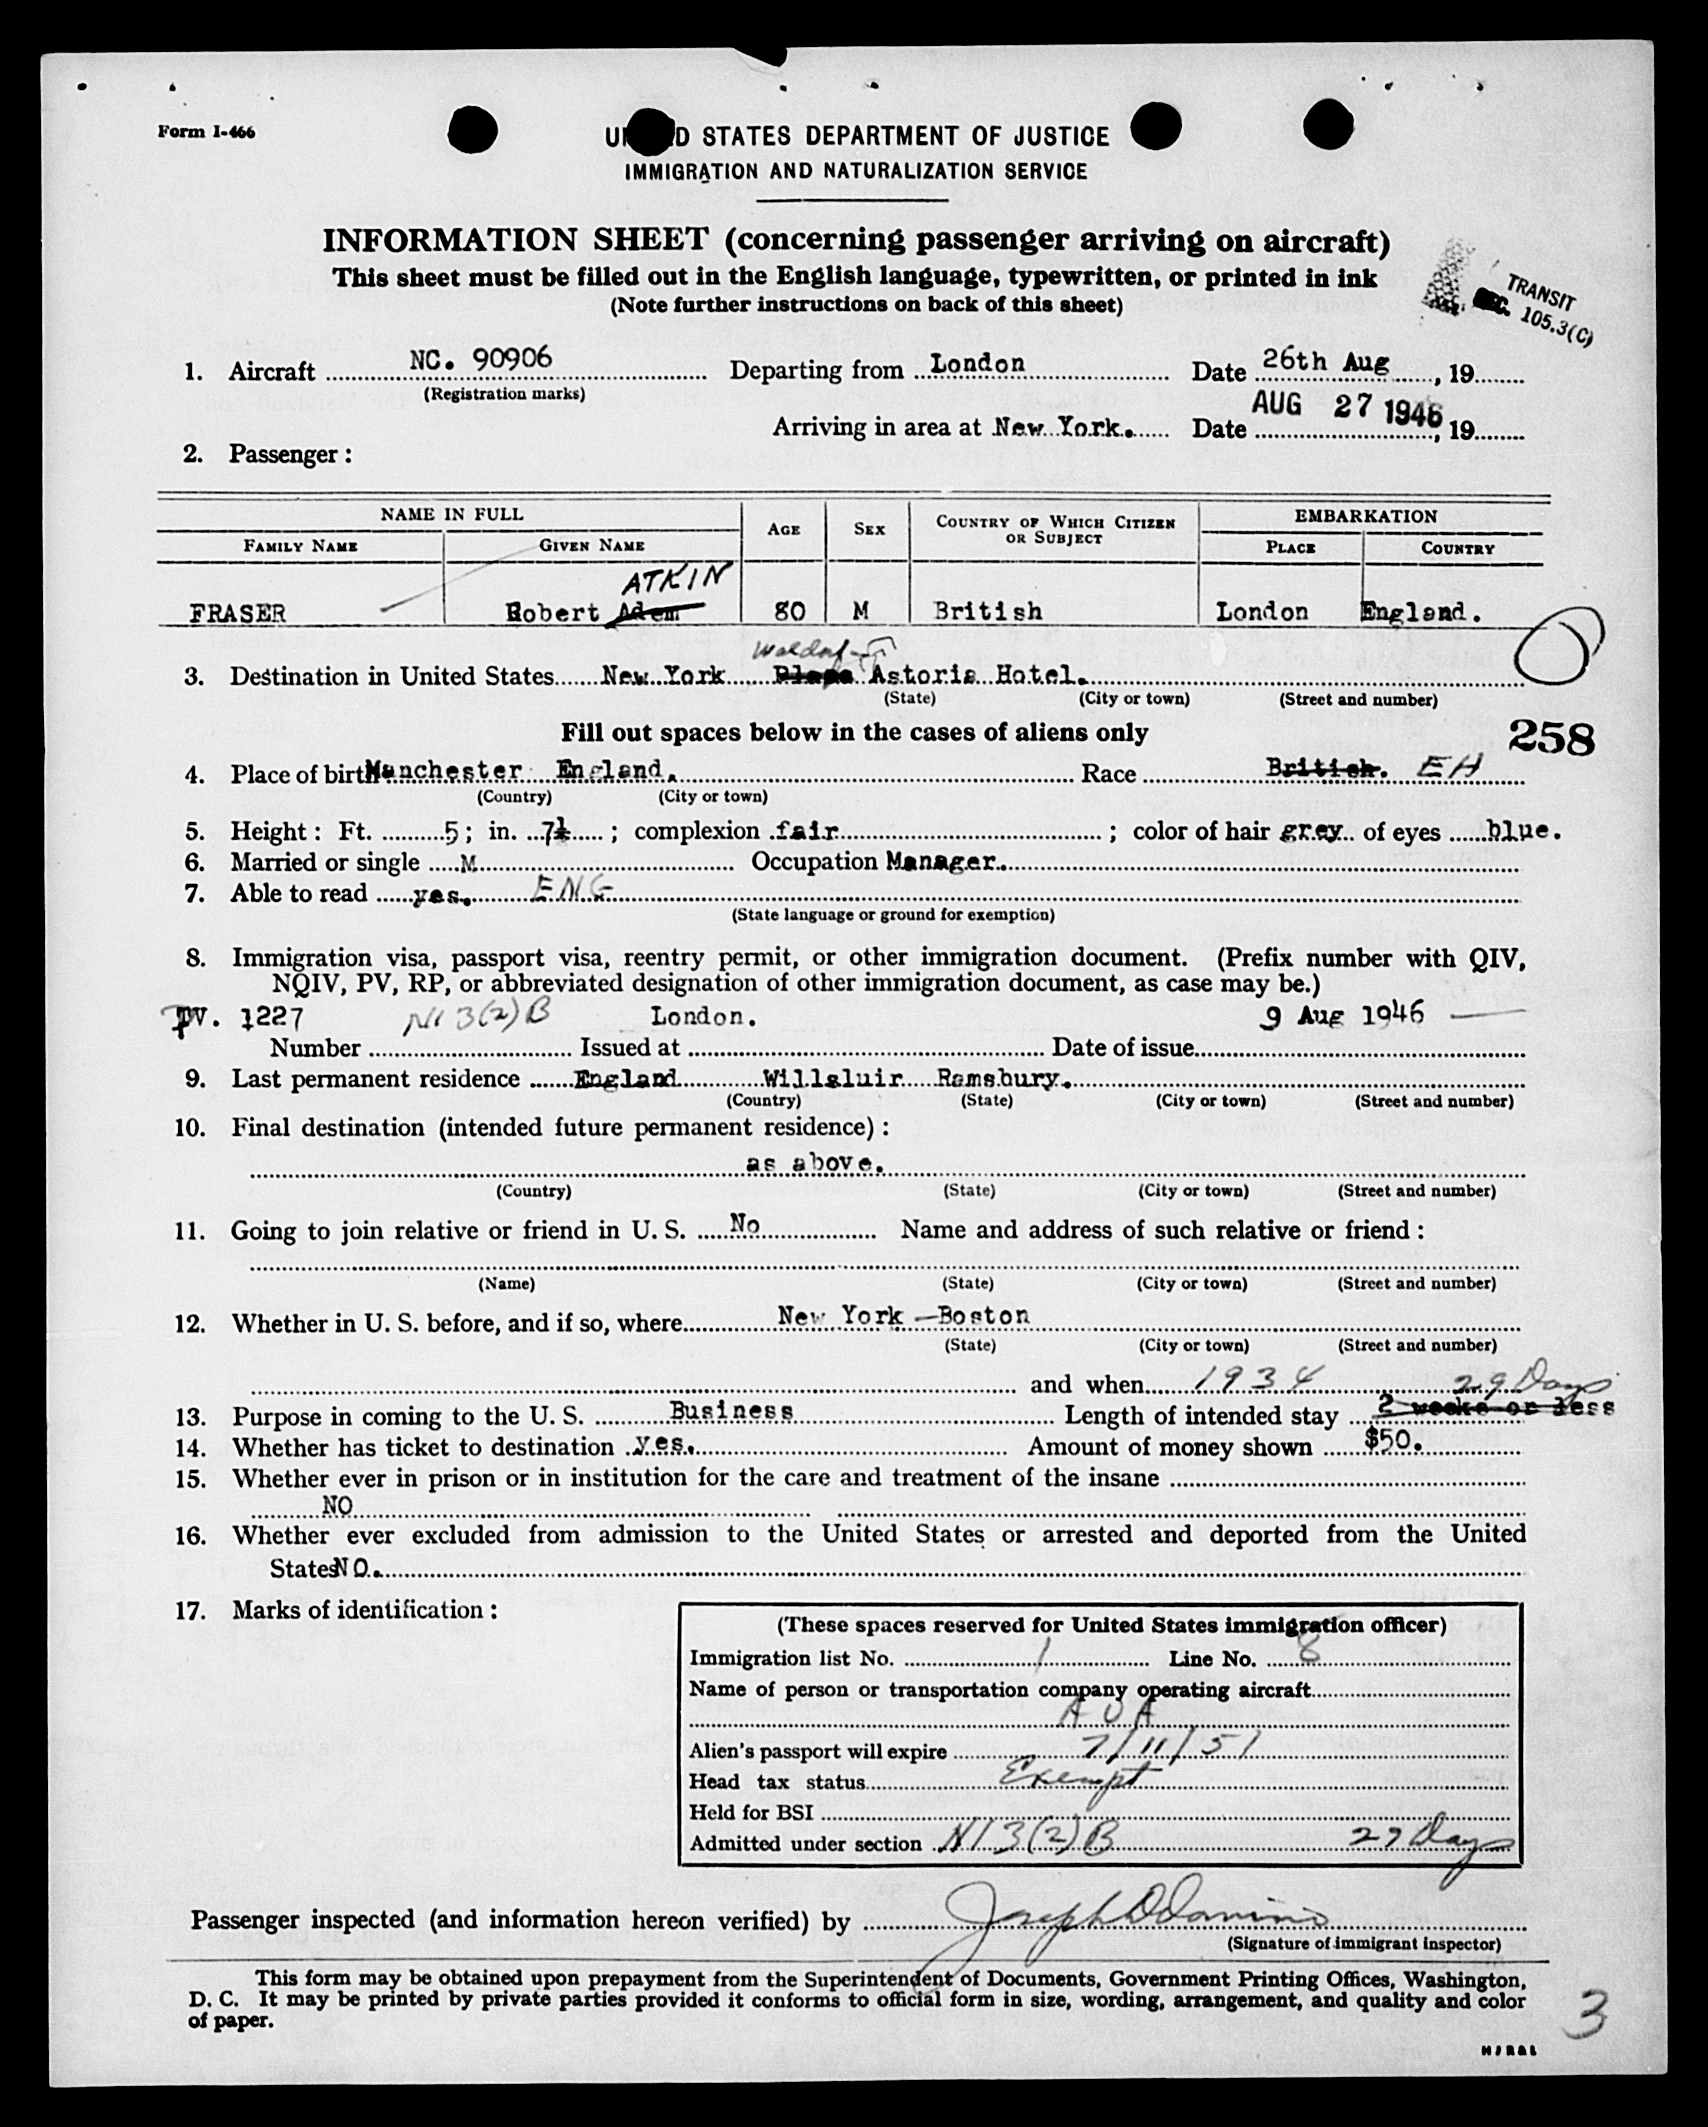 Form I-466
UNITED STATES DEPARTMENT OF JUSTICE
IMMIGRATION AND NATURALIZATION SERVICE
INFORMATION SHEET (concerning passenger arriving on aircraft)
This sheet must be filled out in the English language, typewritten, or printed in ink
(Note further instructions on back of this sheet)
TRANSIT
SEC. 105.3(C)
1. Aircraft NC. 90906 Departing from London Date 26th Aug, 19
(Registration marks)
Arriving in area at New York. Date AUG 27 1946, 19
2. Passenger:
NAME IN FULL AGE SEX COUNTRY OF WHICH CITIZEN OR SUBJECT EMBARKATION
FAMILY NAME GIVEN NAME PLACE COUNTRY
ATKIN
FRASER Robert Adem 80 M British London England.
Waldorf-
3. Destination in United States New York Plaza Astoria Hotel.
(State) (City or town) (Street and number)
Fill out spaces below in the cases of aliens only
258
4. Place of birth Manchester England. Race British. EH
(Country) (City or town)
5. Height: Ft. 5; in. 7½; complexion fair; color of hair grey. of eyes blue.
6. Married or single M Occupation Manager.
7. Able to read yes. ENG
(State language or ground for exemption)
8. Immigration visa, passport visa, reentry permit, or other immigration document. (Prefix number with QIV,
NQIV, PV, RP, or abbreviated designation of other immigration document, as case may be.)
PV. 1227 NI 3(2)B London. 9 Aug 1946
Number Issued at Date of issue
9. Last permanent residence England Willsluir Ramsbury.
(Country) (State) (City or town) (Street and number)
10. Final destination (intended future permanent residence):
as above.
(Country) (State) (City or town) (Street and number)
11. Going to join relative or friend in U. S. No Name and address of such relative or friend:
(Name) (State) (City or town) (Street and number)
12. Whether in U. S. before, and if so, where New York -Boston
(State) (City or town) (Street and number)
and when 1934 29 Days
13. Purpose in coming to the U. S. Business Length of intended stay 2 weeks or less
14. Whether has ticket to destination yes. Amount of money shown $50.
15. Whether ever in prison or in institution for the care and treatment of the insane
NO
16. Whether ever excluded from admission to the United States or arrested and deported from the United
States NO.
17. Marks of identification:
(These spaces reserved for United States immigration officer)
Immigration list No. 1 Line No. 8
Name of person or transportation company operating aircraft
A O A
Alien's passport will expire 7/11/51
Head tax status Exempt
Held for BSI
Admitted under section NI 3(2)B 29 Days
Passenger inspected (and information hereon verified) by
(Signature of immigrant inspector)
This form may be obtained upon prepayment from the Superintendent of Documents, Government Printing Offices, Washington,
D. C. It may be printed by private parties provided it conforms to official form in size, wording, arrangement, and quality and color
of paper.
3